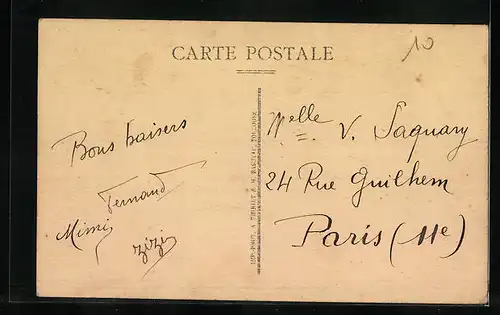 CARTE POSTALE
10
Bons baisers
Fernand
Mimi
Zizi
Melle V. Saquary
24 Rue Guilhem
Paris (11e)